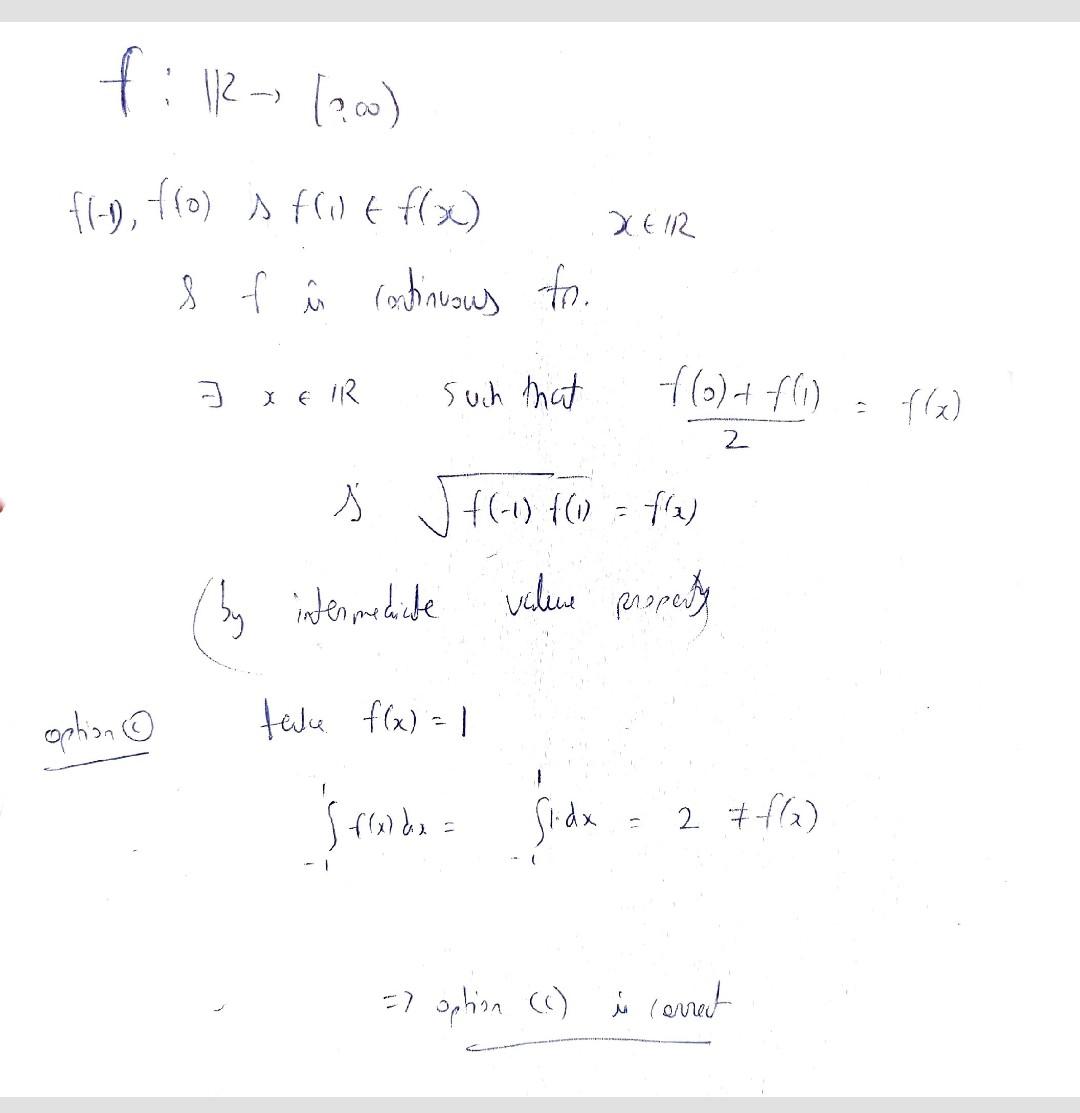 f : ℝ → [0, ∞)
f(-1), f(0) & f(1) ∈ f(x)    x ∈ ℝ
& f is continuous fn.
∃ x ∈ ℝ such that (f(0) + f(1))/2 = f(x)
& √(f(-1) f(1)) = f(x)
(by intermediate value property
option (C) take f(x) = 1
∫_{-1}^{1} f(x) dx = ∫_{-1}^{1} 1·dx = 2 ≠ f(x)
=> option (C) is correct